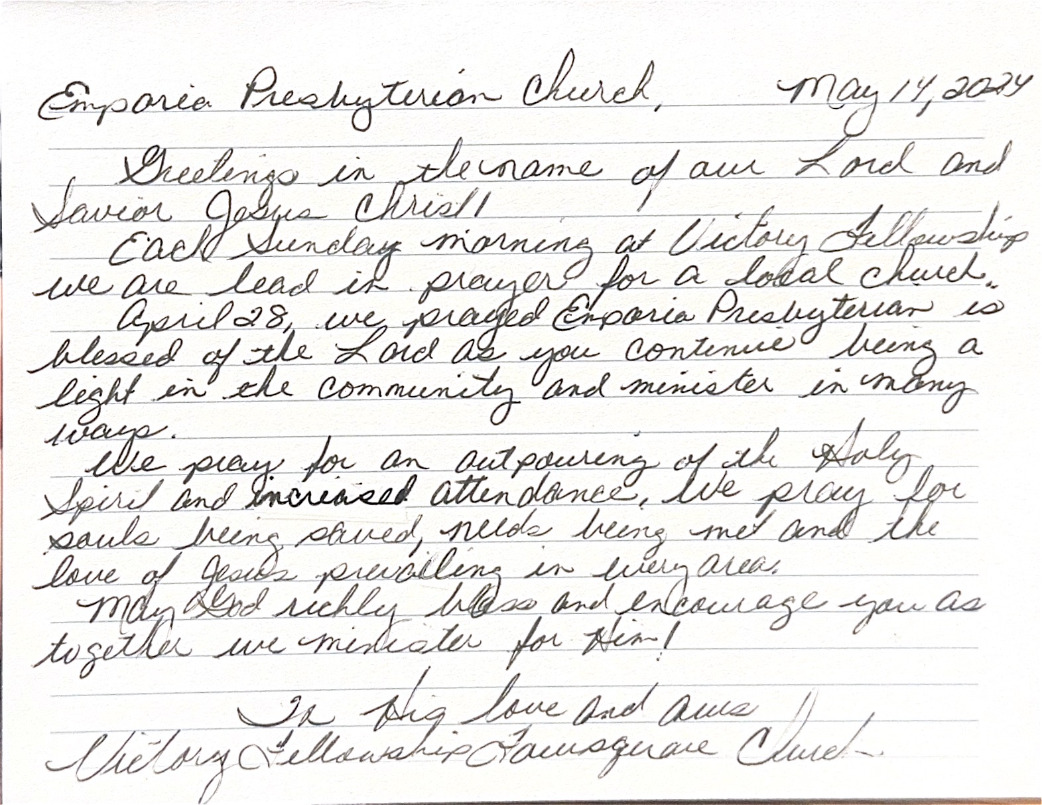 Emporia Presbyterian Church, May 14, 2024
Greetings in the name of our Lord and
Savior Jesus Christ!
Each Sunday morning at Victory Fellowship
we are lead in prayer for a local church.
April 28, we prayed Emporia Presbyterian is
blessed of the Lord as you continue being a
light in the community and minister in many
ways.
We pray for an outpouring of the Holy
Spirit and increased attendance. We pray for
souls being saved, needs being met and the
love of Jesus prevailing in every area.
May God richly bless and encourage you as
together we minister for Him!
In His love and ours
Victory Fellowship Foursquare Church